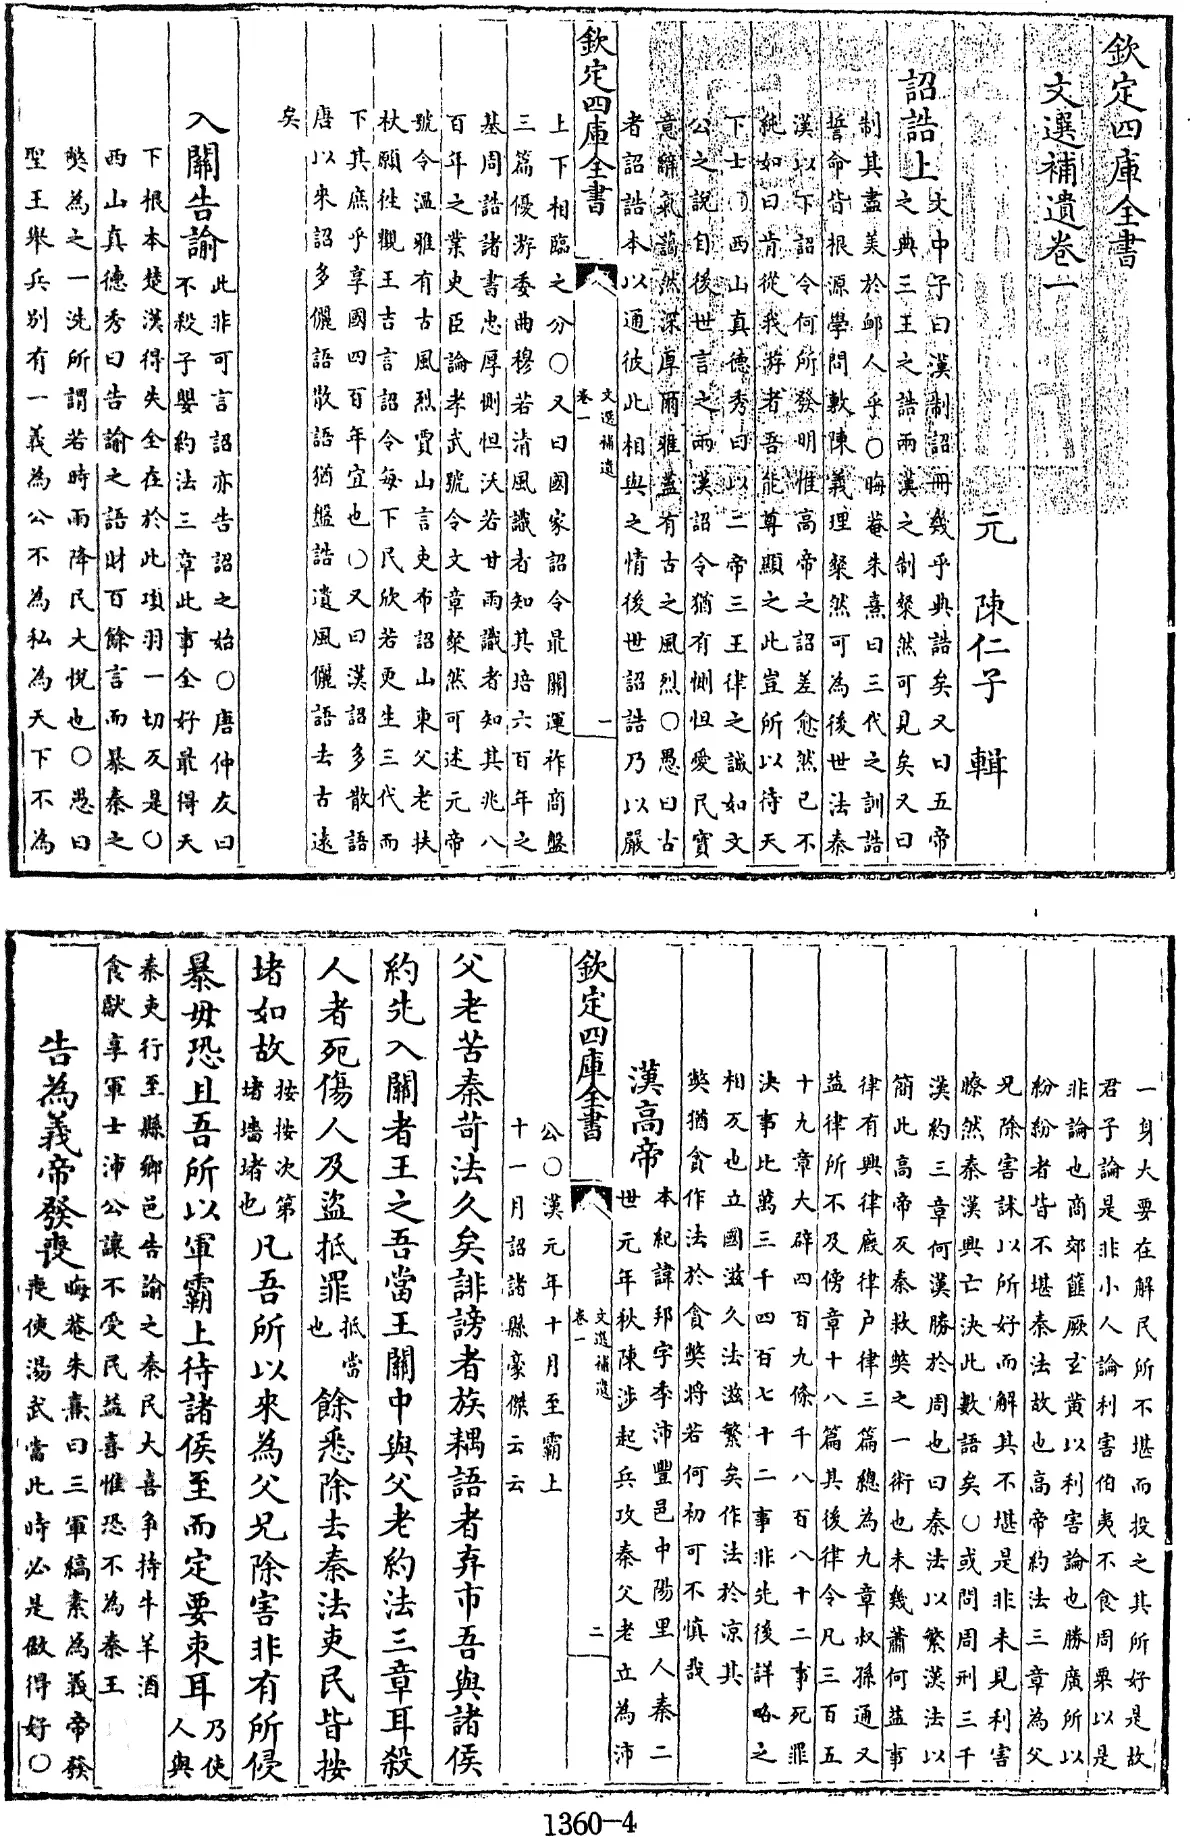 欽定四庫全書
文選補遺卷一
元 陳仁子 輯
詔誥上
文中子曰漢制詔冊幾乎典誥矣又曰五帝
之典三王之誥兩漢之制粲然可見矣又曰
制其盡美於卹人乎○晦菴朱熹曰三代之訓誥
誓命皆根源學問敷陳義理粲然可為後世法秦
漢以下詔令何所發明惟高帝之詔差愈然已不
純如曰肯從我游者吾能尊顯之此豈所以待天
下士○西山真德秀曰以二帝三王律之誠如文
公之說自後世言之兩漢詔令猶有惻怛愛民實
意辭氣藹然深厚爾雅蓋有古之風烈○愚曰古
者詔誥本以通彼此相與之情後世詔誥乃以嚴
欽定四庫全書
文選補遺
卷一
一
上下相臨之分○又曰國家詔令最關運祚商盤
三篇優游委曲穆若清風識者知其培六百年之
基周誥諸書忠厚惻怛沃若甘雨識者知其兆八
百年之業史臣論孝武號令文章粲然可述元帝
號令溫雅有古風烈賈山言吏布詔山東父老扶
杖願徃觀王吉言詔令每下民欣若更生三代而
下其庶乎享國四百年宜也○又曰漢詔多散語
唐以來詔多儷語散語猶盤誥遺風儷語去古遠
矣
入關告諭
此非可言詔亦告詔之始○唐仲友曰
不殺子嬰約法三章此事全好最得天
下根本楚漢得失全在於此項羽一切反是○
西山真德秀曰告諭之語財百餘言而暴秦之
獘為之一洗所謂若時雨降民大悅也○愚曰
聖王舉兵别有一義為公不為私為天下不為
一身大要在解民所不堪而投之其所好是故
君子論是非小人論利害伯夷不食周粟以是
非論也商郊篚厥玄黄以利害論也勝廣所以
紛紛者皆不堪秦法故也高帝約法三章為父
兄除害誅以所好而解其不堪是非未見利害
瞭然秦漢興亡決此數語矣○或問周刑三千
漢約三章何漢勝於周也曰秦法以繁漢法以
簡此高帝反秦救獘之一術也未幾蕭何益事
律有興律廐律户律三篇總為九章叔孫通又
益律所不及傍章十八篇其後律令凡三百五
十九章大辟四百九條千八百八十二事死罪
決事比萬三千四百七十二事非先後詳略之
相反也立國滋久法滋繁矣作法於凉其
獘猶貪作法於貪獘將若何初可不慎哉
漢高帝
本紀諱邦字季沛豐邑中陽里人秦二
世元年秋陳涉起兵攻秦父老立為沛
欽定四庫全書
文選補遺
卷一
二
公○漢元年十月至霸上
十一月詔諸縣豪傑云云
父老苦秦苛法久矣誹謗者族耦語者弃市吾與諸侯
約先入關者王之吾當王關中與父老約法三章耳殺
人者死傷人及盜抵罪
抵當
也
餘悉除去秦法吏民皆按
堵如故
按按次第
堵墻堵也
凡吾所以來為父兄除害非有所侵
暴毋恐且吾所以軍霸上待諸侯至而定要束耳
乃使
人與
秦吏行至縣鄉邑告諭之秦民大喜争持牛羊酒
食獻享軍士沛公讓不受民益喜惟恐不為秦王
告為義帝發喪
晦菴朱熹曰三軍縞素為義帝發
喪使湯武當此時必是做得好○
1360-4